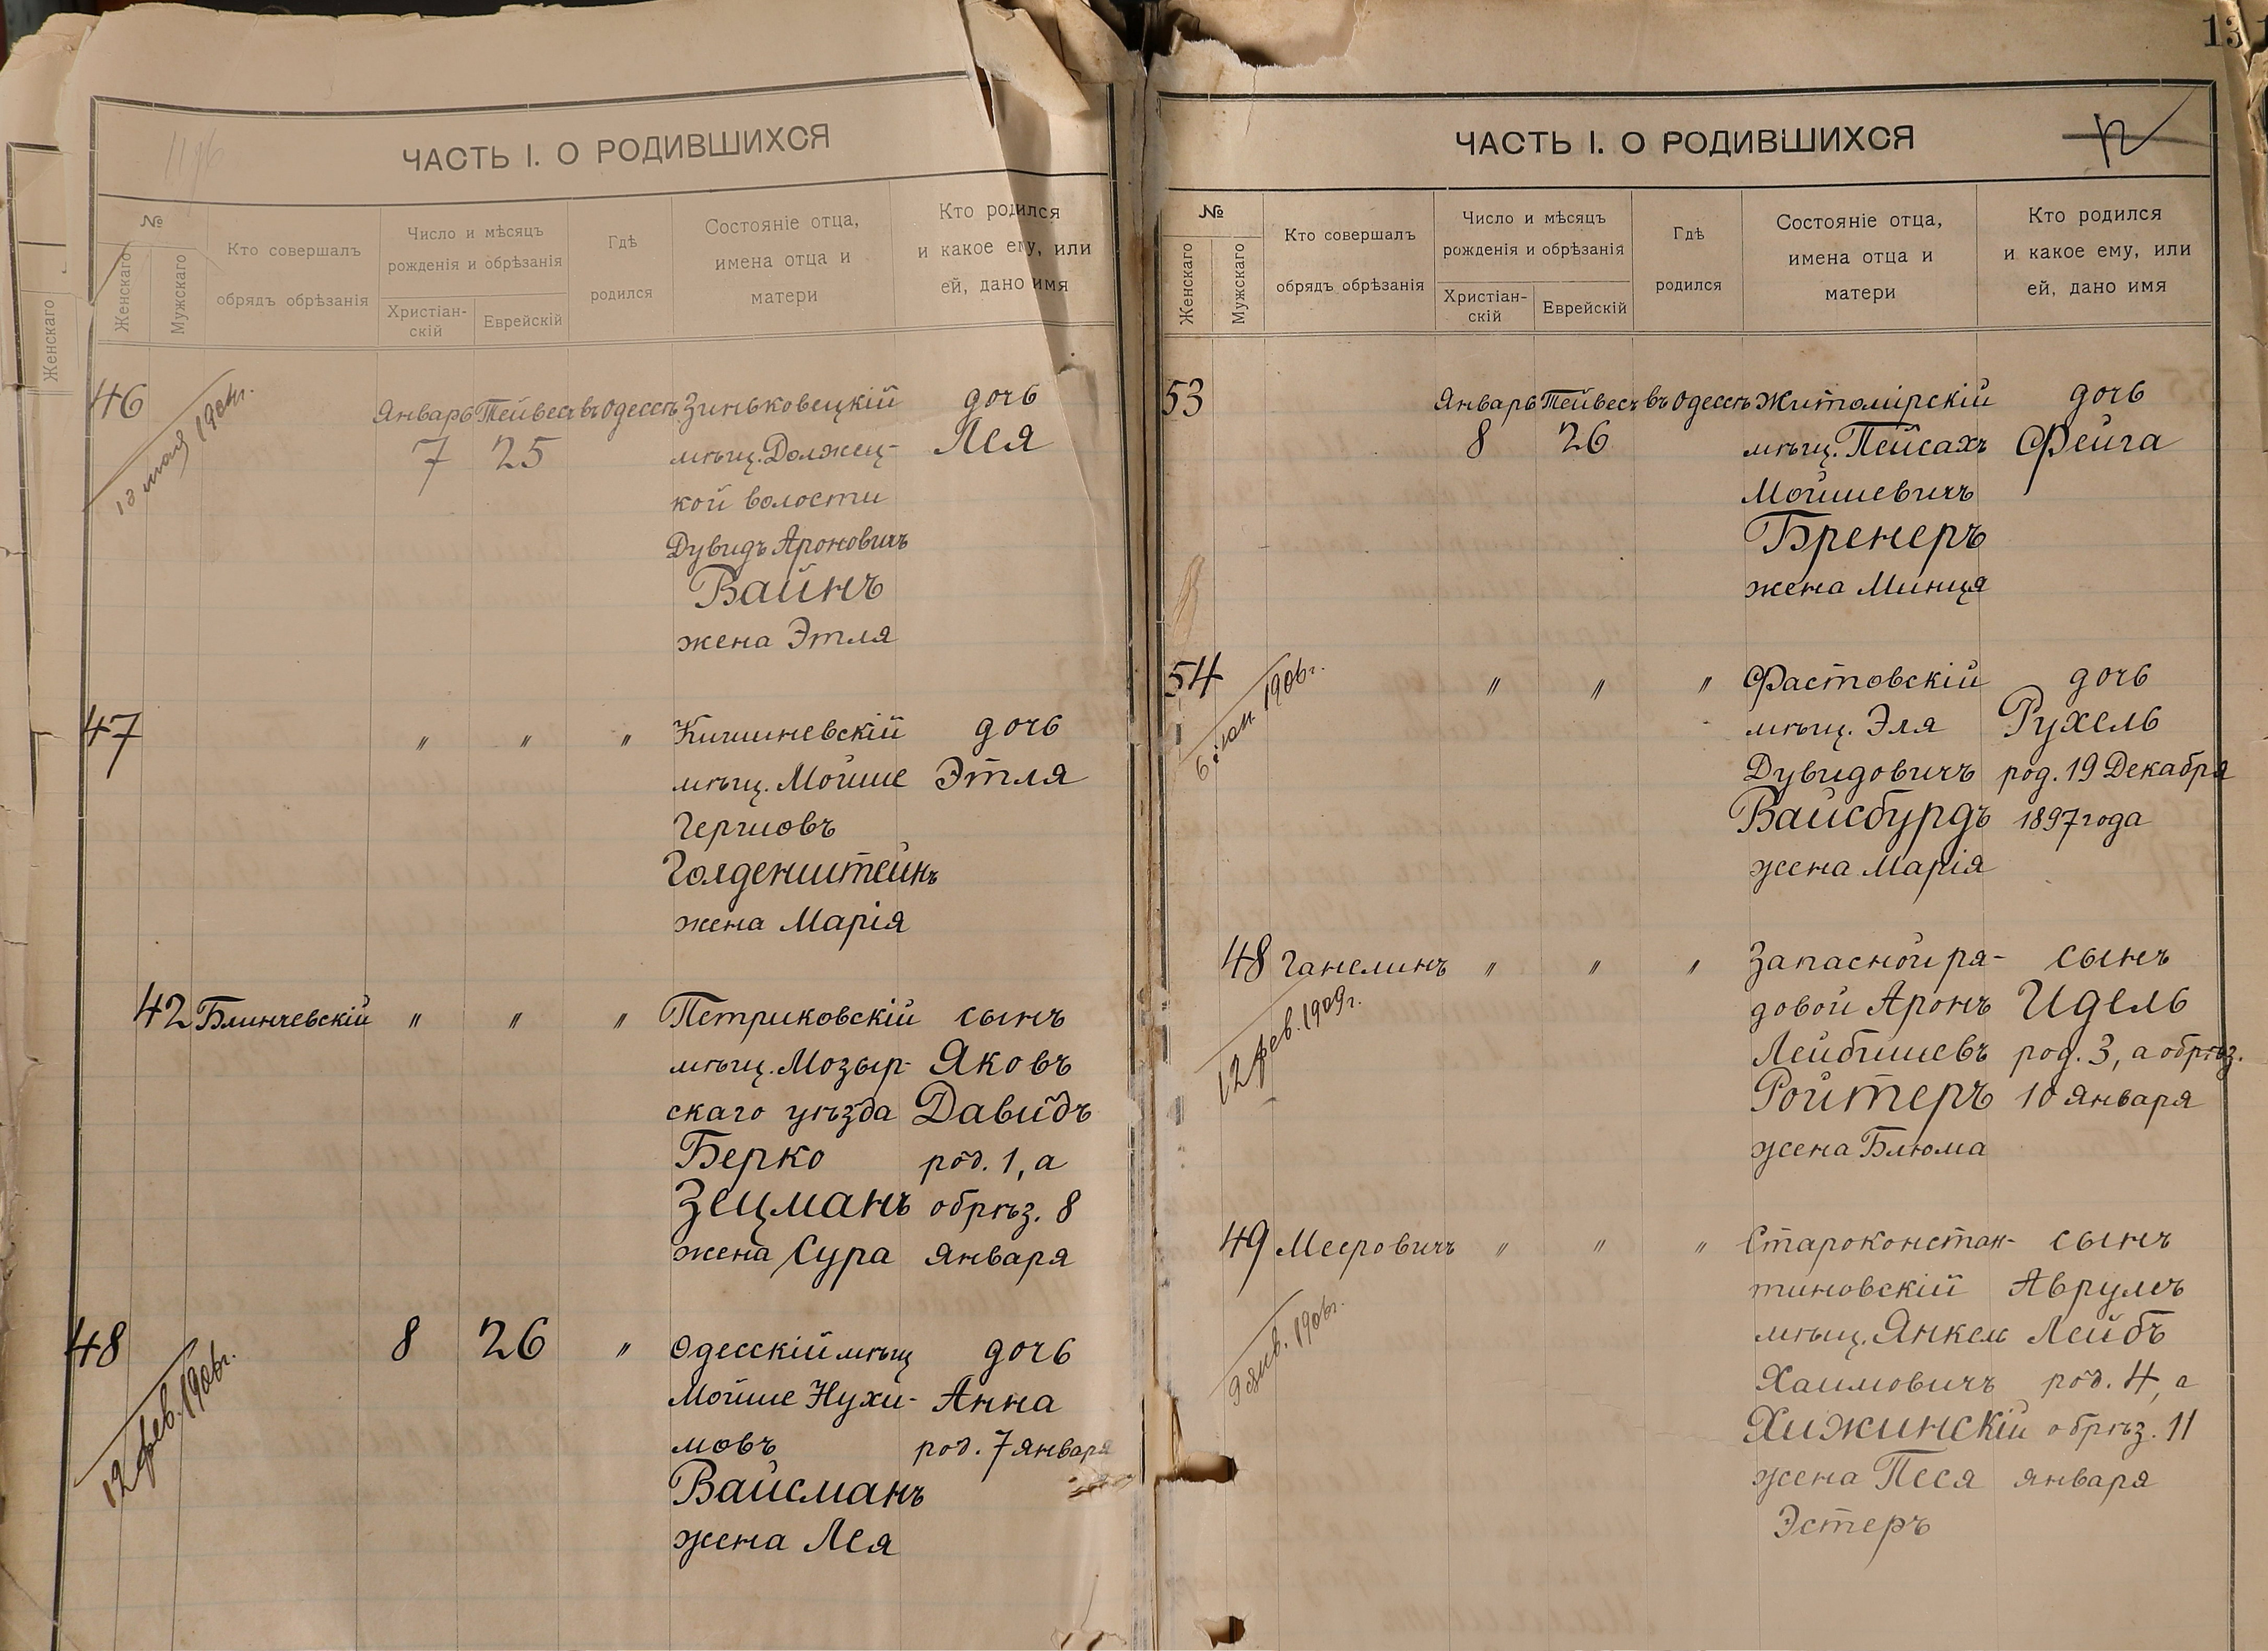 13
ЧАСТЬ I. О РОДИВШИХСЯ
№
Женскаго
Мужскаго
Кто совершалъ
обрядъ обрѣзанія
Число и мѣсяцъ
рожденія и обрѣзанія
Христіан-
скій
Еврейскій
Гдѣ
родился
Состояніе отца,
имена отца и
матери
Кто родился
и какое ему, или
ей, дано имя
Женскаго
46
13 мая
Январь Тейвесъ въ Одессѣ Зиньковецкій дочь
7 25 мѣщ. Должец- Лея
кой волости
Дувидъ Ароновичъ
Вайнъ
жена Этля
47 " " " Кишиневскій дочь
мѣщ. Мойше Этля
Гершовъ
Голденштейнъ
жена Марія
42 Блинчевскій " " " Петриковскій сынъ
мѣщ. Мозыр- Яковъ
скаго уѣзда Давидъ
Берко род. 1, а
Зецманъ обрѣз. 8
жена Сура Января
48 8 26 " Одесскій мѣщ дочь
12 фев. 1906г.
Мойше Нухи- Анна
мовъ род. 7 Января
Вайсманъ
жена Лея
ЧАСТЬ I. О РОДИВШИХСЯ
№
Женскаго
Мужскаго
Кто совершалъ
обрядъ обрѣзанія
Число и мѣсяцъ
рожденія и обрѣзанія
Христіан-
скій
Еврейскій
Гдѣ
родился
Состояніе отца,
имена отца и
матери
Кто родился
и какое ему, или
ей, дано имя
53 Январь Тейвесъ въ Одессѣ Житомірскій дочь
8 26 мѣщ. Пейсахъ Фейга
Мойшевичъ
Бренеръ
жена Минця
54 " " " Фастовскій дочь
1906г.
мѣщ. Эля Рухель
Дувидовичъ род. 19 Декабря
Вайсбурдъ 1897 года
жена Марія
48 Ганелинъ " " " Запасной ря- сынъ
12 фев. 1909г.
довой Аронъ Идель
Лейбишевъ род. 3, а обрѣз.
Ройтеръ 10 Января
жена Блюма
49 Мееровичъ " " " Староконстан- сынъ
9 янв. 1906г.
тиновскій Аврумъ
мѣщ. Янкель Лейбъ
Хаимовичъ род. 4, а
Хижинскій обрѣз. 11
жена Песя января
Эстеръ